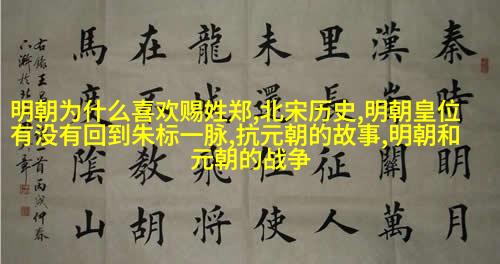 明朝为什么喜欢赐姓郑,北宋历史,明朝皇位
有没有回到朱标一脉,抗元朝的故事,明朝和
元朝的战争
秦時明月
漢時關萬
里長征人
未還但使
龍城飛將
在不教胡
馬度陰山
右錄王 首丙戌仲春